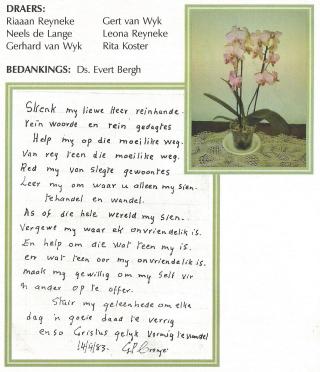 DRAERS:
Riaaan Reyneke Gert van Wyk
Neels de Lange Leona Reyneke
Gerhard van Wyk Rita Koster
BEDANKINGS: Ds. Evert Bergh
Skenk my liewe Heer reinhande.
rein woorde en rein gedagtes
Help my op die moeilike weg.
Van reg teen die moeilike weg.
Red my van slegte gewoontes
Leer my om waar u alleen my sien.
te handel en wandel.
As of die hele wereld my sien.
Vergewe my waar ek onvriendelik is.
En help om die wat teen my is.
en wat teen oor my onvriendelik is.
maak my gewillig om my self vir
'n ander op te offer.
Stuir my geleenhede om elke
dag 'n goeie daad te verrig
en so Cristus gelyk vormig te wandel